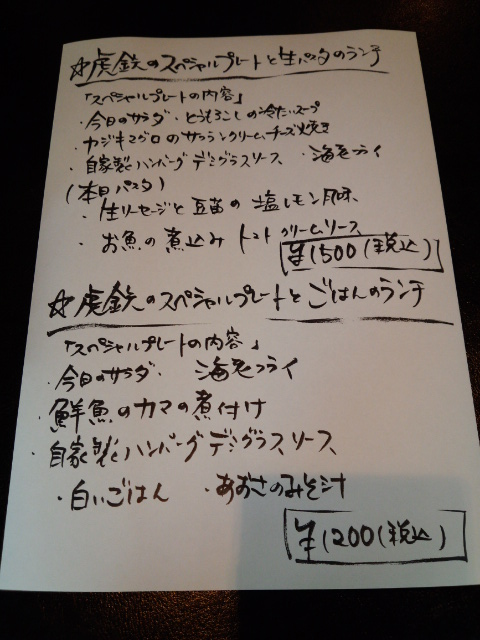 ☆虎鉄のスペシャルプレートと生パスタのランチ
「スペシャルプレートの内容」
・今日のサラダ・とうもろこしの冷たいスープ
・カジキマグロのサフランクリームチーズ焼き
・自家製ハンバーグデミグラスソース ・海老フライ
(本日パスタ)
・生ソーセージと豆苗の塩レモン風味
・お魚の煮込みトマトクリームソース
¥1500(税込)
☆虎鉄のスペシャルプレートとごはんのランチ
「スペシャルプレートの内容」
・今日のサラダ・海老フライ
・鮮魚のカマの煮付け
・自家製ハンバーグデミグラスソース
・白いごはん ・あおさのみそ汁
¥1200(税込)